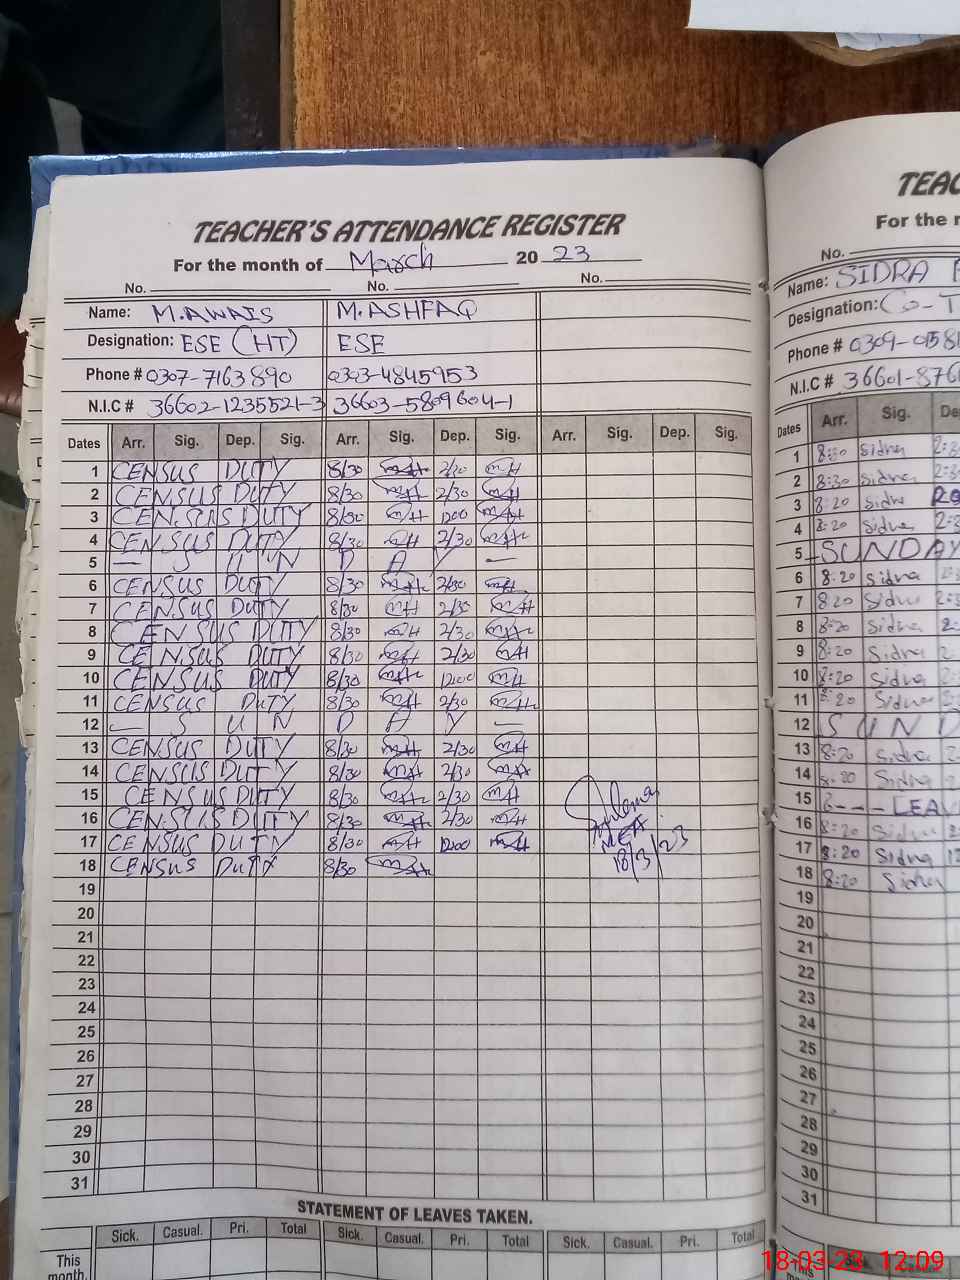 TEACHER'S ATTENDANCE REGISTER
For the month of March 20 23
No. No. No.
Name: M.AWAIS M.ASHFAQ
Designation: ESE (HT) ESE
Phone # 0307-7163890 0303-4845953
N.I.C # 36602-1235521-3 36603-5809604-1
Dates Arr. Sig. Dep. Sig. Arr. Sig. Dep. Sig. Arr. Sig. Dep. Sig.
1 CENSUS DUTY 8/30 2/30
2 CENSUS DUTY 8/30 2/30
3 CENSUS DUTY 8/30 1200
4 CENSUS DUTY 8/30 2/30
5 — S U N D A Y —
6 CENSUS DUTY 8/30 2/30
7 CENSUS DUTY 8/30 2/30
8 CENSUS DUTY 8/30 2/30
9 CENSUS DUTY 8/30 2/30
10 CENSUS DUTY 8/30 1200
11 CENSUS DUTY 8/30 2/30
12 — S U N D A Y —
13 CENSUS DUTY 8/30 2/30
14 CENSUS DUTY 8/30 2/30
15 CENSUS DUTY 8/30 2/30
16 CENSUS DUTY 8/30 2/30
17 CENSUS DUTY 8/30 1200
18 CENSUS DUTY 8/30
MEA
18/3/23
19
20
21
22
23
24
25
26
27
28
29
30
31
STATEMENT OF LEAVES TAKEN.
Sick. Casual. Pri. Total Sick. Casual. Pri. Total Sick. Casual. Pri. Total
This month.
TEAC
For the
No.
Name: SIDRA
Designation:
Phone # 0309-0158
N.I.C # 36601-876
Dates Arr. Sig. De
1 8:30 Sidra 2:3
2 8:30 Sidra 2:3
3 8:20 Sidra
4 8:20 Sidra 2:3
5 SUNDAY
6 8:20 Sidra
7 8:20 Sidra 2:3
8 8:20 Sidra 2:
9 8:20 Sidra 2:
10 8:20 Sidra
11 8:20 Sidra
12 S U N D
13 8:20 Sidra 2
14 8:20 Sidra 2
15 LEAV
16 8:20 Sidra
17 8:20 Sidra 12
18 8:20 Sidra
19
20
21
22
23
24
25
26
27
28
29
30
31
This month
Sick. Casual
18-03-23 12:09